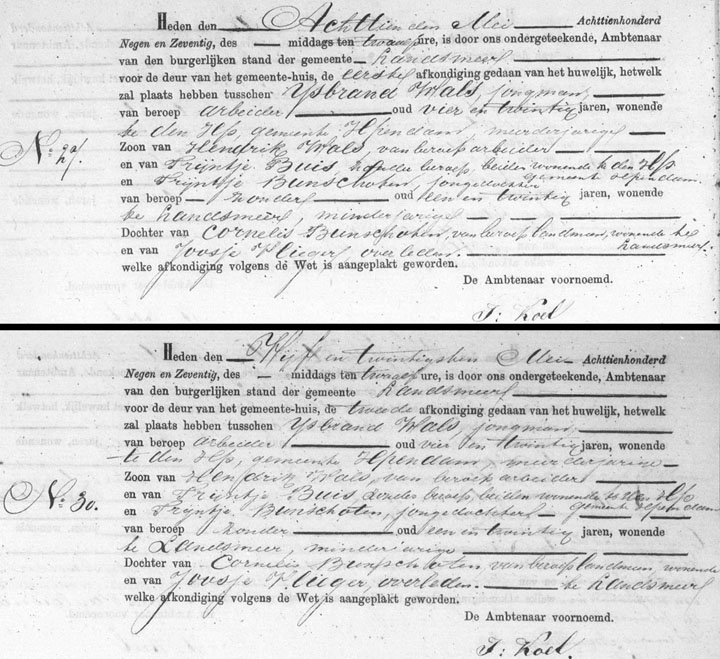 Heden den Achttienden Mei Achttienhonderd
Negen en Zeventig, des — middags ten twaalf ure, is door ons ondergeteekende, Ambtenaar
van den burgerlijken stand der gemeente Landsmeer
voor de deur van het gemeente-huis, de eerste afkondiging gedaan van het huwelijk, hetwelk
zal plaats hebben tusschen Ysbrand Wals, jongman
van beroep arbeider oud vier en twintig jaren, wonende
te den Ilp, gemeente Ilpendam, meerderjarige
No.
Zoon van Hendrik Wals, van beroep arbeider
en van Trijntje Buis, zonder beroep, beiden wonende te den Ilp
gemeente Ilpendam
en Trijntje Bunschoten, jongedochter
van beroep zonder oud een en twintig jaren, wonende
te Landsmeer, minderjarige
Dochter van Cornelis Bunschoten, van beroep landman, wonende te
Landsmeer.
en van Joosje Vlieger, overleden.
welke afkondiging volgens de Wet is aangeplakt geworden.
De Ambtenaar voornoemd.
J: Koel
Heden den Vijf en twintigsten Mei Achttienhonderd
Negen en Zeventig, des — middags ten twaalf ure, is door ons ondergeteekende, Ambtenaar
van den burgerlijken stand der gemeente Landsmeer
voor de deur van het gemeente-huis, de tweede afkondiging gedaan van het huwelijk, hetwelk
zal plaats hebben tusschen Ysbrand Wals, jongman
van beroep arbeider oud vier en twintig jaren, wonende
te den Ilp, gemeente Ilpendam, meerderjarige
Zoon van Hendrik Wals, van beroep arbeider
No. 30.
en van Trijntje Buis, zonder beroep, beiden wonende te den Ilp
gemeente Ilpendam
en Trijntje Bunschoten, jongedochter
van beroep zonder oud een en twintig jaren, wonende
te Landsmeer, minderjarige
Dochter van Cornelis Bunschoten van beroep landman, wonende
en van Joosje Vlieger, overleden. te Landsmeer
welke afkondiging volgens de Wet is aangeplakt geworden.
De Ambtenaar voornoemd.
J: Koel.